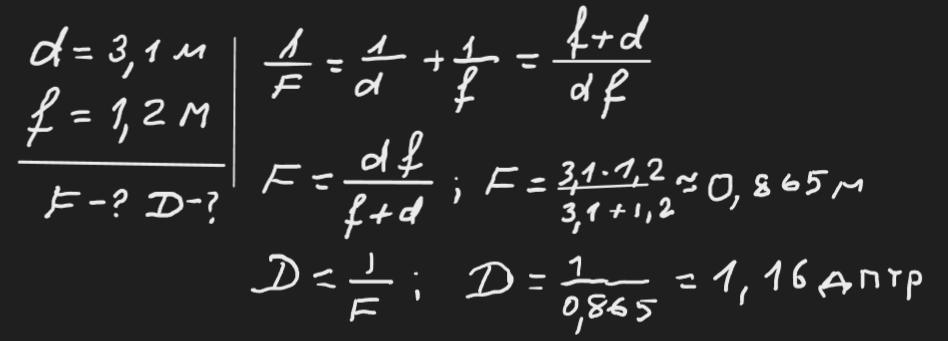 d = 3,1 м
f = 1,2 м
F - ? D - ?
1/F = 1/d + 1/f = (f+d)/(df)
F = df/(f+d) ; F = (3,1 · 1,2)/(3,1 + 1,2) ≈ 0,865 м
D = 1/F ; D = 1/0,865 = 1,16 дптр